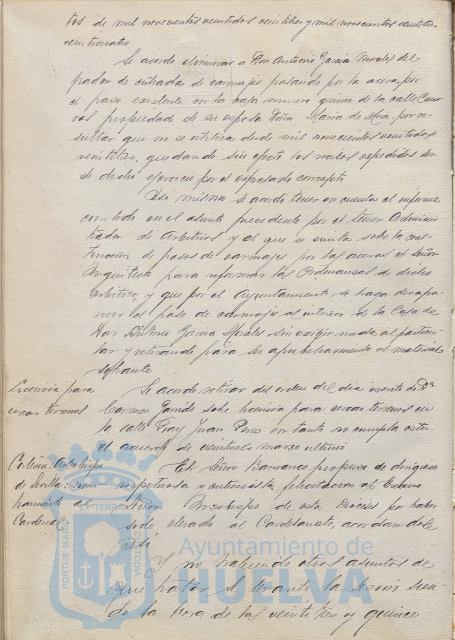 tos de mil novecientos veintidos veintitres y mil novecientos veintitres
veinticuatro
Se acordó eliminar a Don Antonio García Morales del
padrón de entrada de carruajes pasando por la acera por
el paso existente en la casa número quince de la calle
propiedad de su esposa Doña María de por re-
sultar que no se utiliza desde mil novecientos veintidos
veintitres, quedando sin efecto los recibos expedidos des-
de dicho ejercicio por el expresado concepto
Asi mismo se acordó tener en cuenta el informe
emitido en el asunto precedente por el Señor Adminis-
trador de Arbitrios y al que se emita sobre la cons-
trucción de pasos de carruajes por las aceras el Señor
Arquitecto para reformar las Ordenanzas de dicho
arbitrio, y que por el Ayuntamiento se haga desapa-
recer el paso de carruajes al interior de la Casa de
Don Antonio García Morales, sin exigir nada al particu-
lar y retirando para su aprovechamiento el material
sobrante
Licencia para
cercar terrenos
Se acordó retirar del orden del día escrito de Dª
Carmen Garrido sobre licencia para cercar terrenos en
la calle Fray Juan Perez en tanto no cumpla este
el acuerdo de veintiuno marzo último
Cortesía: Arzobispo
de Sevilla: nom-
bramiento de
Cardenal
El Señor Barranco propuso se dirigiese
respetuosa y entusiasta felicitación al Excmo
Señor Arzobispo de esta Diócesis por haber
sido elevado al Cardenalato, acordándole
así
Y no habiendo otros asuntos de
que tratar se levantó la sesión sien-
do la hora de las veintitres y quince
PORTUS MARIS
TERRAE
Ayuntamiento de
HUELVA